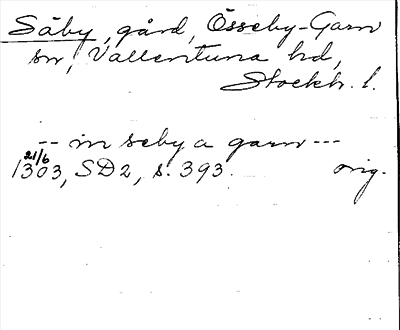 Säby, gård, Össeby-Garn
sn, Vallentuna hd,
Stockh. l.
-- in seby a garn ---
21/6
1303, SD2, s. 393. orig.